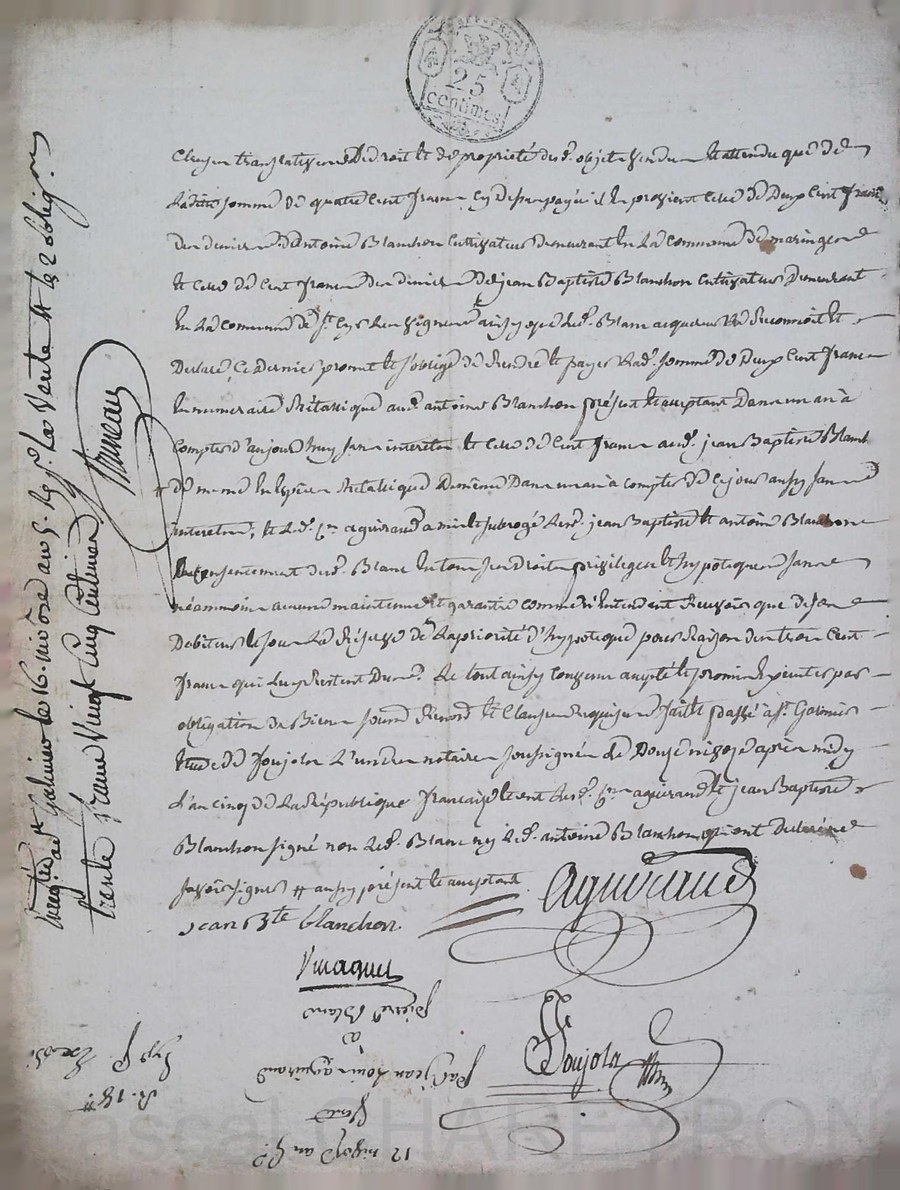 25
centimes
Clauses translatives de droit et de propriété desd. objets vendus et attendu que de
Ladite somme de quatre cent francs cy dessus payée il en provient celle de Deux Cent francs
des deniers d'Antoine Blanchon Cultivateur demeurant en La commune de maringes
et celle de Cent francs des deniers de jean Baptiste Blanchon Cultivateur Demeurant
En La Commune de St. ainsy que led. Blanc acquereur Le Reconnoit et
Declare, Ce Dernier promet et s'oblige de Rendre et payer Lad. somme de Deux Cent francs
En numeraire Métalique aud. antoine Blanchon présent Et acceptant Dans un an à
Compter d'aujourd'huy sans interets et celle de Cent francs aud. jean Baptiste Blanch
de même En Espèces Métalique de même Dans un an à compter de Ce jour aussy sans
interets; et Led. Cn. aguiraud a mis et subrogé Lesd. jean Baptiste et antoine Blanchon
du Consentement dud. Blanc En tous ses Droits privileges et hypoteques sans
néammoins aucune maintenue et garantie comme
Debiteur et sous La Réserve de La priorité d'hypoteque pour Raison des trois Cent
francs qui Luy Restent Dus. Le tout ainsy Convenu accepté et promis Executer par
obligation de Biens soumis Renonc. et Clauses Requises fait et passé à St. Galmier
Etude de Soujola L'un des notaires soussignés Le Douze nivose après midy
L'an cinq de La République française et ont Lesd. Cn. aguiraud et jean Baptiste
Blanchon signé non Led. Blanc ny Led. antoine Blanchon qui ont declaré ne
savoir signer # aussy présent et acceptant
jean Bte blanchon
Aguiraud
Soujola
Enreg. à St. Galmier le 16 nivôse an 5. Reçu p. La Vente et les 2 oblig.ons
trente francs Vingt Cinq Centimes
12 nivose an 5e
Vente
Par jean Louis aguiraud
a
pierre Blanc
R. 18 #